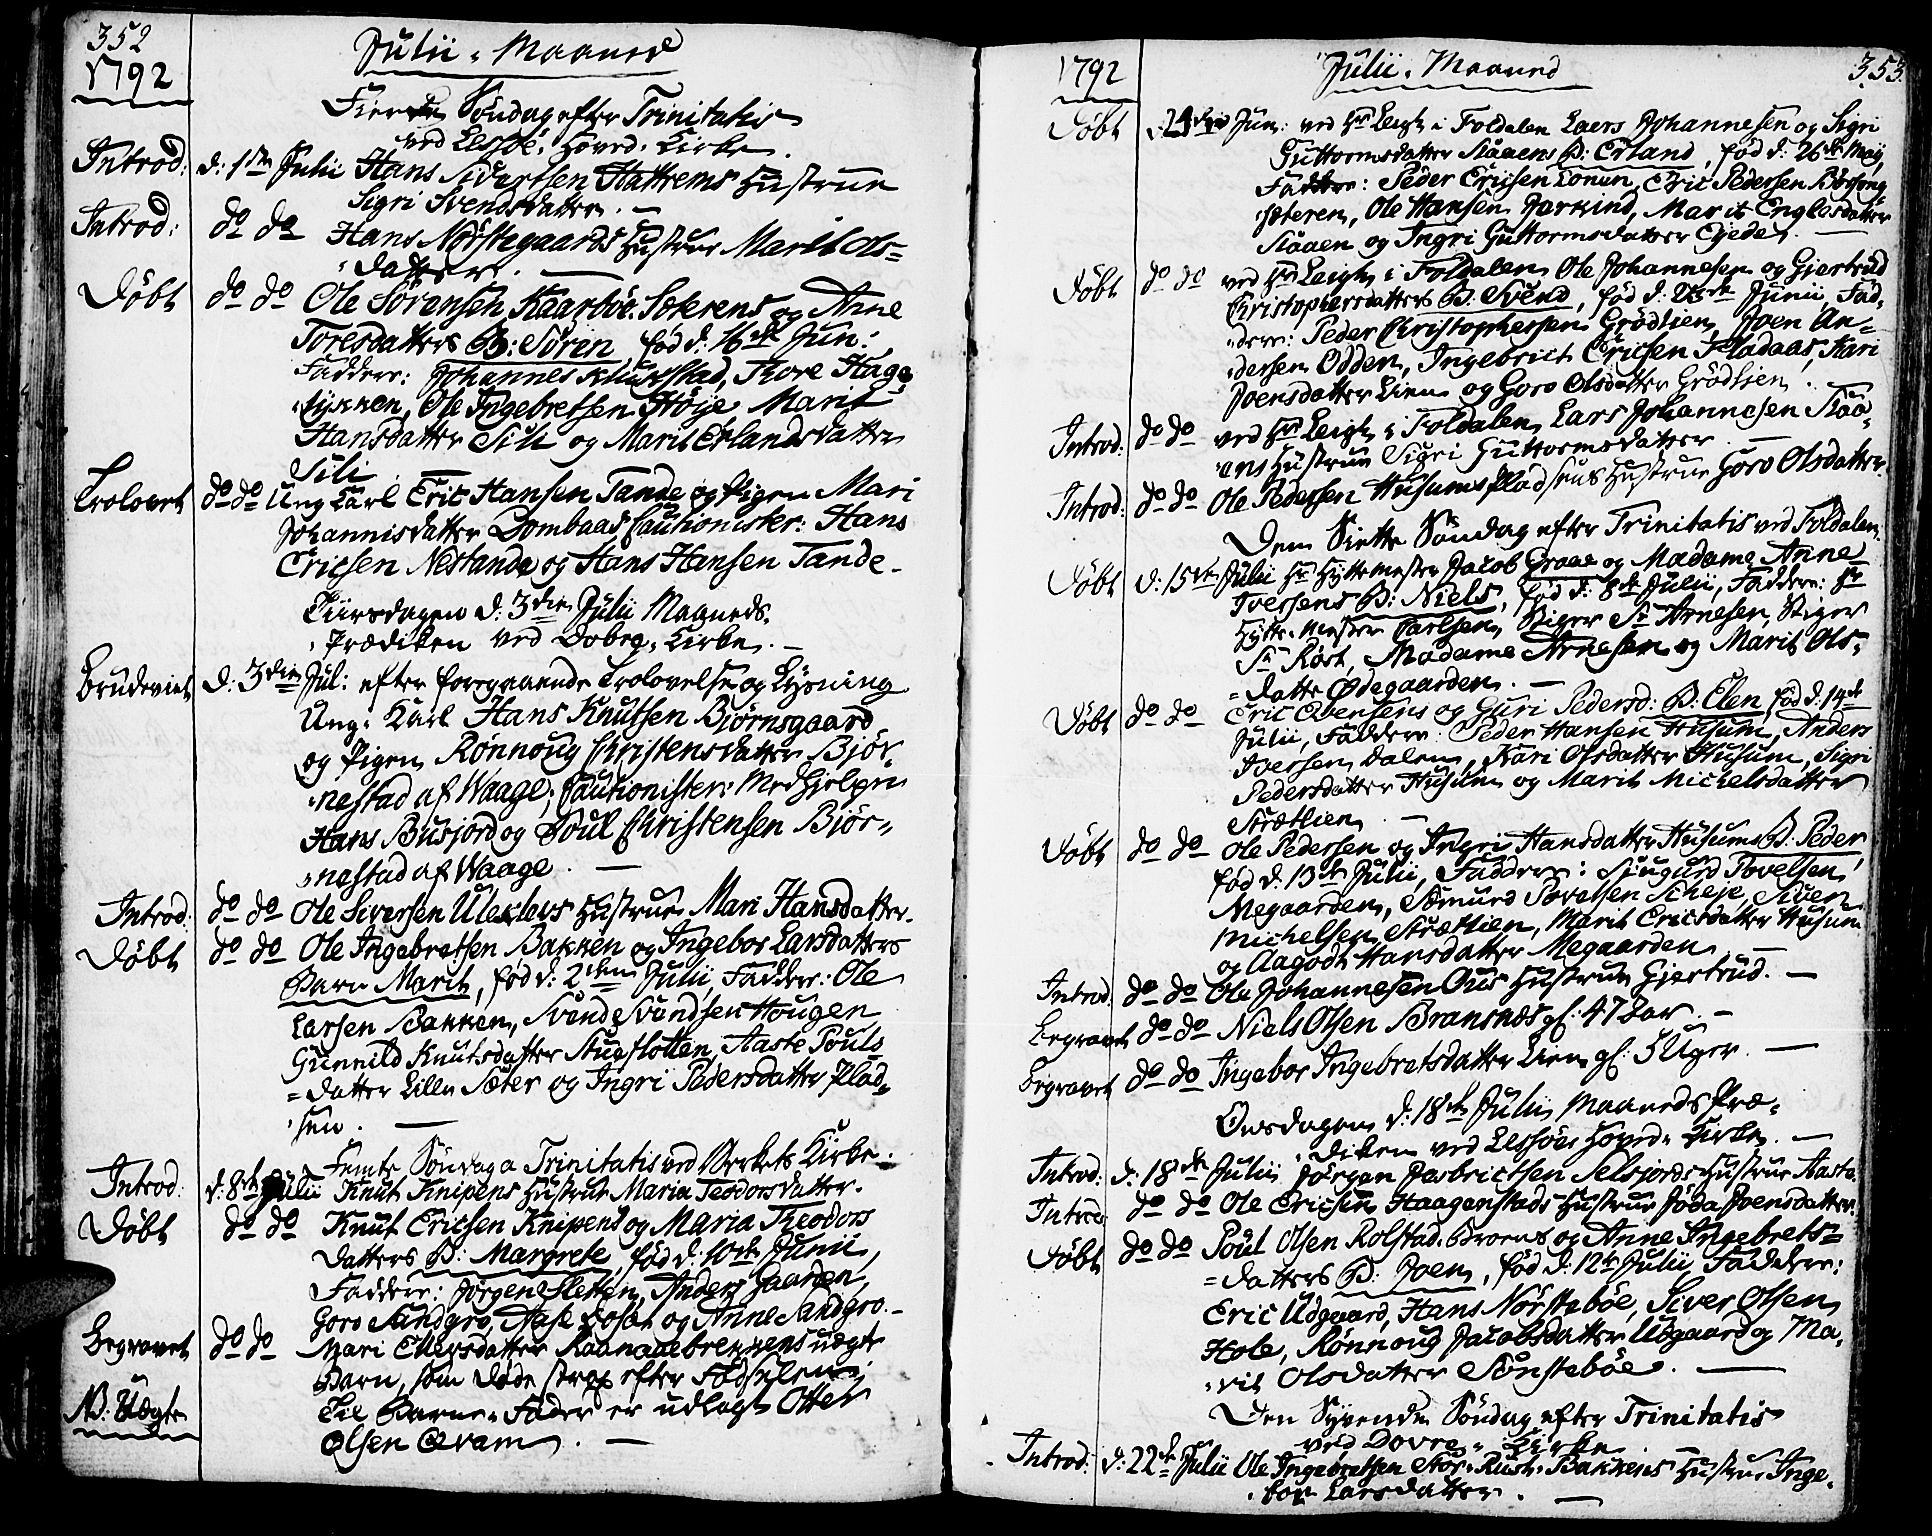 352
1792
Julii Maaned
Fierde Søndag efter Trinitatis
ved Lessøe Hoved-Kirke.
Introd: d: 1ste Julii Hans Sivertsen Hattrems Hustrue
Sigri Svendsdatter. —
Introd: do do Hans Nørstegaards Hustrue Marit Ols=
datter. —
Døbt do do Ole Sørensen Kaarbøe Lokrens og Anne
Toresdatters B: Søren, fød d: 16de Jun:
Faddere: Johannes Klukstad, Thore Hage,
lykken, Ole Ingebretsen Støije Marit
Hansdatter Sili og Marit Erlandsdatter
Sili.
Trolovet do do Ung Karl Eric Hansen Tande og Pigen Mari
Johannisdatter Dombaas, Cautionister: Hans
Ericsen Nestande og Hans Hansen Tande.
Tiirsdagen d: 3die Julii Maaneds
Prædiken ved Dovre Kirke. —
Brudeviet d: 3die Jul: efter foregaaende Trolovelse og Lysning
Ung Karl Hans Knutsen Bjørnsgaard
og Pigen Rønnoug Christensdatter Bjør,
nestad af Waage; Cautionister: Medhjelper
Hans Busjord og Poul Christensen Bjør,
nestad af Waage. —
Introd: do do Ole Siversen Uleklevs Hustrue Mari Hansdatter.
Døbt do do Ole Ingebretsen Bakken og Ingebor Larsdatters
Barn Marit, fød d: 2den Julii, Faddere: Ole
Larsen Bakken, Svend Svendsen Hougen
Gunnild Knutsdatter Stugflotten, Aaste Pouls
=datter Lille Sæter og Ingri Pedersdatter Plad,
sen. —
Femte Søndag a Trinitatis ved Værkets Kirke.
Introd: d: 8de Julii Knut Knipens Hustrue Maria Teodorsdatter.
Døbt do do Knut Ericsen Knipens og Maria Theodors
datters B: Margrete, fød d: 10de Junii,
Faddere: Jørgen Sletten, Anders Gaarden,
Goro Sandgro, Aase og Anne Sandgro. —
Begravet do do Mari Ellersdatter Raanaaebrekkens uægte
Barn, som døde strax efter Fødselen;
NB: Uægte Til Barne-Fader er udlagt Otter
Olsen Qvam. —
1792
Julii Maaned
353
Døbt d: 24de Jun: ved Hr Leigh i Foldalen Laers Johannesen og Sigri
Guttormsdatter Slaaens B: Erland, fød d: 26de Maij,
Faddere: Peder Ericsen Lonen, Eric Pedersen Børsong
sæteren, Ole Hansen Jerkind, Marit Englosdatter
Slaaen og Ingri Guttormsdatter Eyede. —
Døbt do do ved Hr Leigh i Foldalen Ole Johannesen og Gjertrud
Christophersdatters B: Svend, fød d: 23de Junii, Fad,
dere: Peder Christophersen Grødlien, Joen An=
dersen Odden, Ingebrict Ericsen Pladaas, Kari
Joensdatter Lien og Goro Olsdatter Grødlien.
Introd: do do ved Hr Leigh i Foldalen Lars Johannesen Slaa,
ens Hustrue Sigri Guttormsdatter. —
Introd: do do Ole Pedersen Husums Pladsens Hustrue Goro Olsdatter.
Den Siette Søndag efter Trinitatis ved Foldalen.
Døbt d: 15de Julii Hr Hyttemester Jacob Graae og Madame Anne
Iversens B: Niels, fød d: 8de Julii, Faddere: Hr
Hytte-Mester Carlsen, Stiger Sr Arnesen, Stiger
Sr Røst, Madame Arnesen og Marit Ols=
=datter Ødegaarden. —
Døbt do do Eric Evensens og Guri Pedersd: B: Elen, fød d: 14de
Julii, Faddere: Peder Hansen Husum, Anders
Iversen Dalen, Kari Olsdatter Husum, Sigri
Pedersdatter Husum og Marit Michelsdatter
Strætlien. —
Døbt do do Ole Pedersen og Ingri Hansdatter Husums B: Peder,
fød d: 13de Julii, Faddere: Siugurd Povelsen
Megaarden, Sæmund Povelsen Scheje, Siver
Michelsen Strætlien, Marit Ericsdatter Husum
og Aagodt Hansdatter Megaarden —
Introd: do do Ole Johannesen Ous Hustrue Gjertrud. —
Begravet do do Niels Olsen Bransnæs gl: 47 Aar. —
Begravet do do Ingebor Ingebretsdatter Lien gl: 3 Uger. —
Onsdagen d: 18de Julii Maaneds Præ,
diken ved Lessøe Hoved-Kirke. —
Introd: d: 18de Julii Jørgen Jasbrictsen Selsjords Hustrue Aaste.
Introd: do do Ole Ericsen Haagenstads Hustrue Jøda Joensdatter.
Døbt do do Poul Olsen Rolstad Broens og Anne Ingebrets=
=datters B: Joen, fød d: 12te Julii, Faddere:
Eric Udgaard, Hans Nørstebøe, Siver Olsen
Hole, Rønnoug Jacobsdatter Udgaard og Ma,
rit Olsdatter Sønstebøe. —
Den Syvende Søndag efter Trinitatis
ved Dovre Kirke
Introd: d: 22de Julii Ole Ingebretsen Stor-Rusts-Bakkens Hustrue Inge,
bor Larsdatter. —